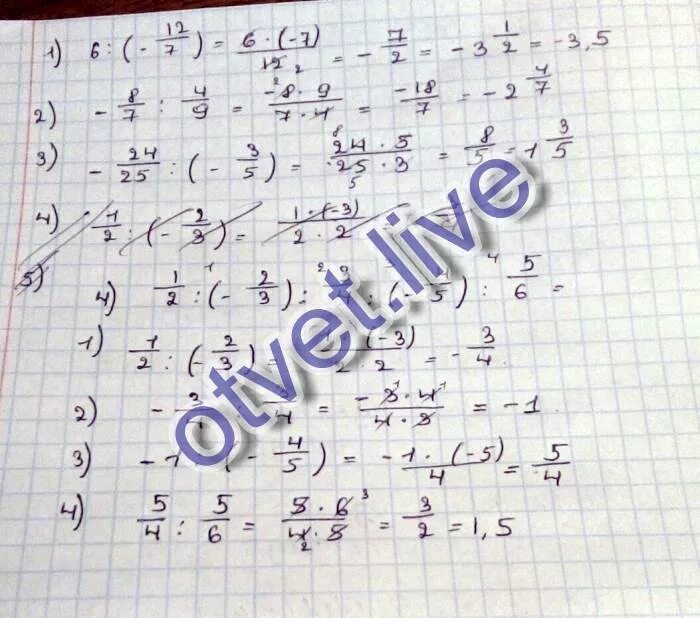 1) 6 : (- 12/7) = 6 · (-7)/12 2 = - 7/2 = -3 1/2 = -3,5
2) - 8/7 : 4/9 = -8 · 9/7 · 4 = -18/7 = -2 4/7
3) - 24/25 : (- 3/5) = 24 · 5/25 · 3 = 8/5 = 1 3/5
4) 1/2 : (- 2/3) = 1 · (-3)/2 · 2 =
5)
4) 1/2 : (- 2/3) : 3/4 : (- /5) : 5/6 =
1) 1/2 : (- 2/3) = (-3)/2 2 = - 3/4.
2) - 3/ /4 = -3 · 4/4 · 3 = -1.
3) -1 (- 4/5) = -1 · (-5)/4 = 5/4
4) 5/4 : 5/6 = 5 · 6/4 · 5 = 3/2 = 1,5
otvet.live